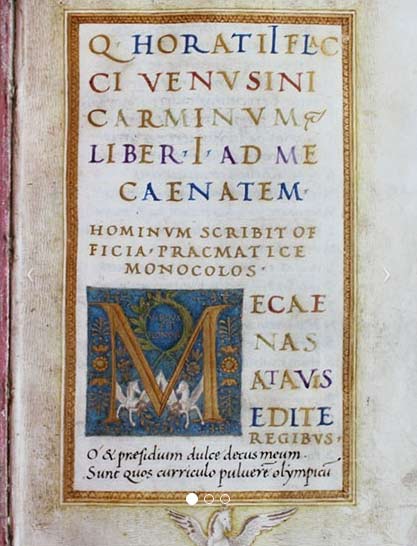 Q· HORATII FLAC
CI VENVSINI
CARMINVMQ
LIBER·I·AD ME
CAENATEM·
HOMINVM SCRIBIT OF
FICIA·PRACMATICE
MONOCOLOS·
MECAE
NAS
ATAVIS
EDITE
REGIBVS·
O & præsidium dulce decus meum·
Sunt quos curriculo pulverẽ olympicũ